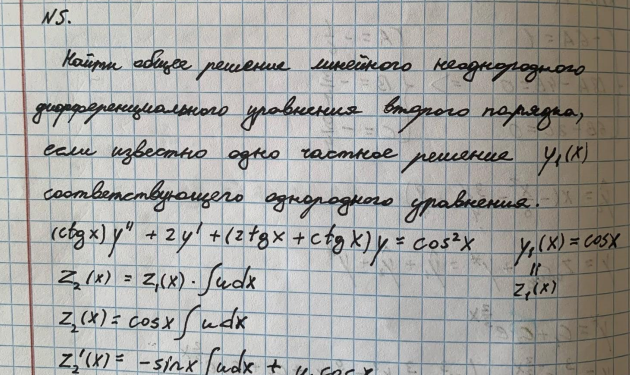 N5.
Найти общее решение линейного неоднородного
дифференциального уравнения второго порядка,
если известно одно частное решение y₁(x)
соответствующего однородного уравнения.
(ctgx)y'' + 2y' + (2tgx + ctgx)y = cos²x y₁(x) = cosx
॥
z₁(x)
z₂(x) = z₁(x) · ∫udx
z₂(x) = cosx ∫udx
z₂'(x) = -sinx ∫udx + u cosx